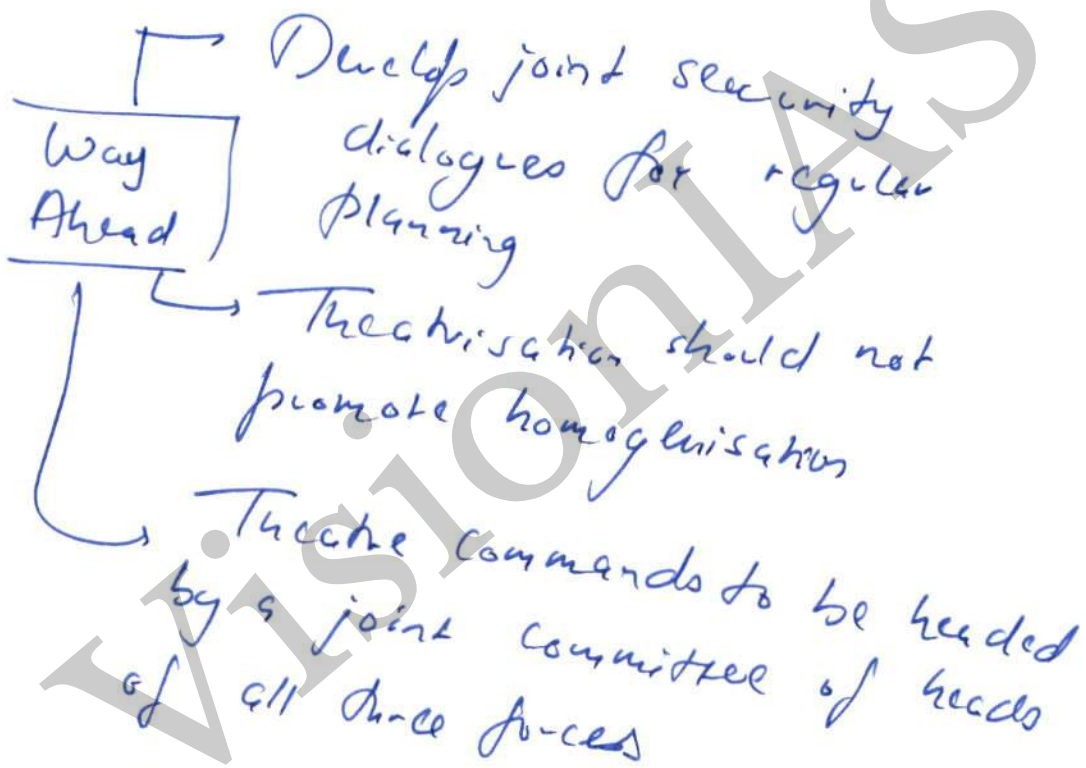 Way
Ahead
Develop joint security
dialogues for regular
planning
Theatrisation should not
promote homogenisation
Theatre commands to be headed
by a joint committee of heads
of all three forces
VisionIAS